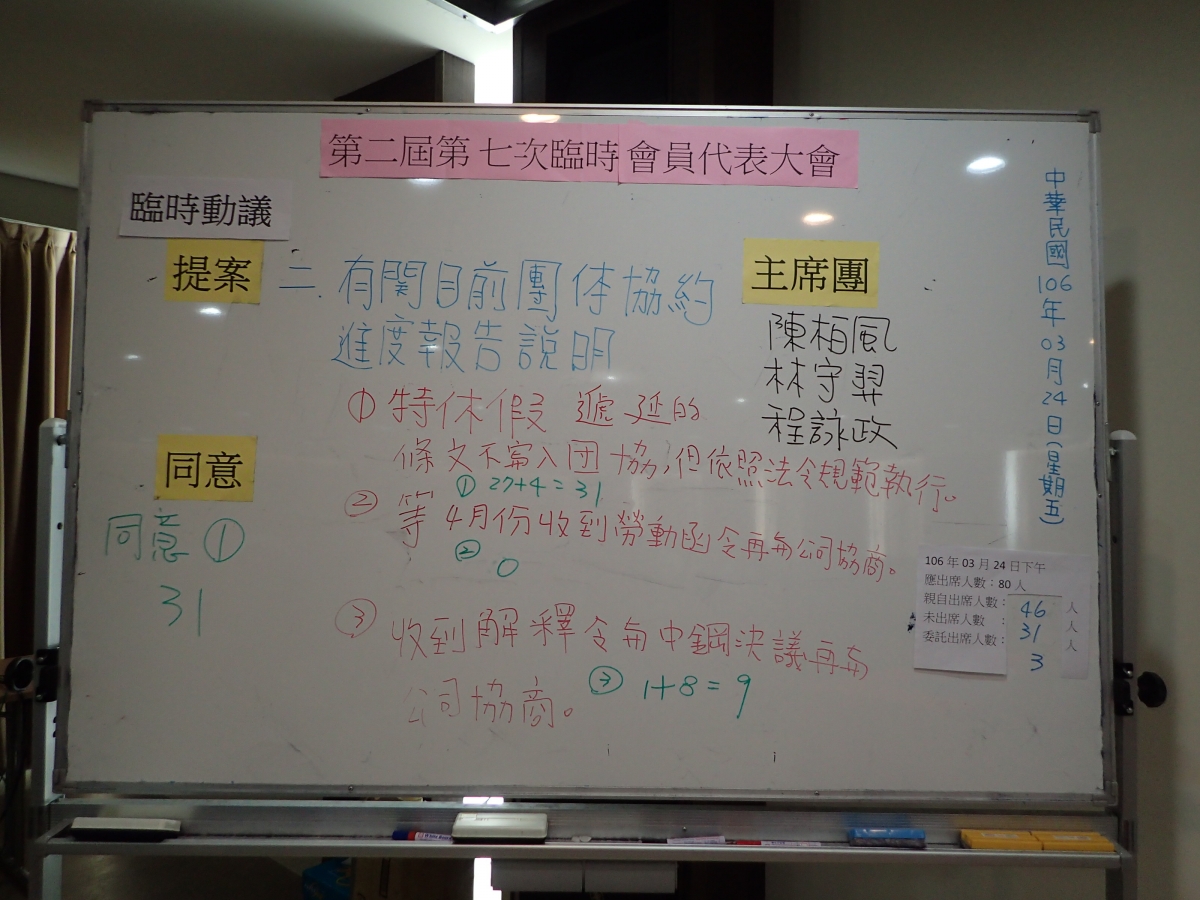 第二屆第七次臨時會員代表大會
臨時動議
提案
二、有関目前團体協約
進度報告說明
① 特休假 遞延的
條文不寫入団協,但依照法令規範執行。
① 27+4=31
② 等4月份收到勞動函令再與公司協商。
② 0
③ 收到解釋令與中鋼決議再與
公司協商。
③ 1+8=9
同意
同意①
31
主席團
陳柏風
林守羿
程詠政
中華民國106年03月24日(星期五)
106年03月24日下午
應出席人數:80人
親自出席人數:46人
未出席人數:31人
委託出席人數:3人